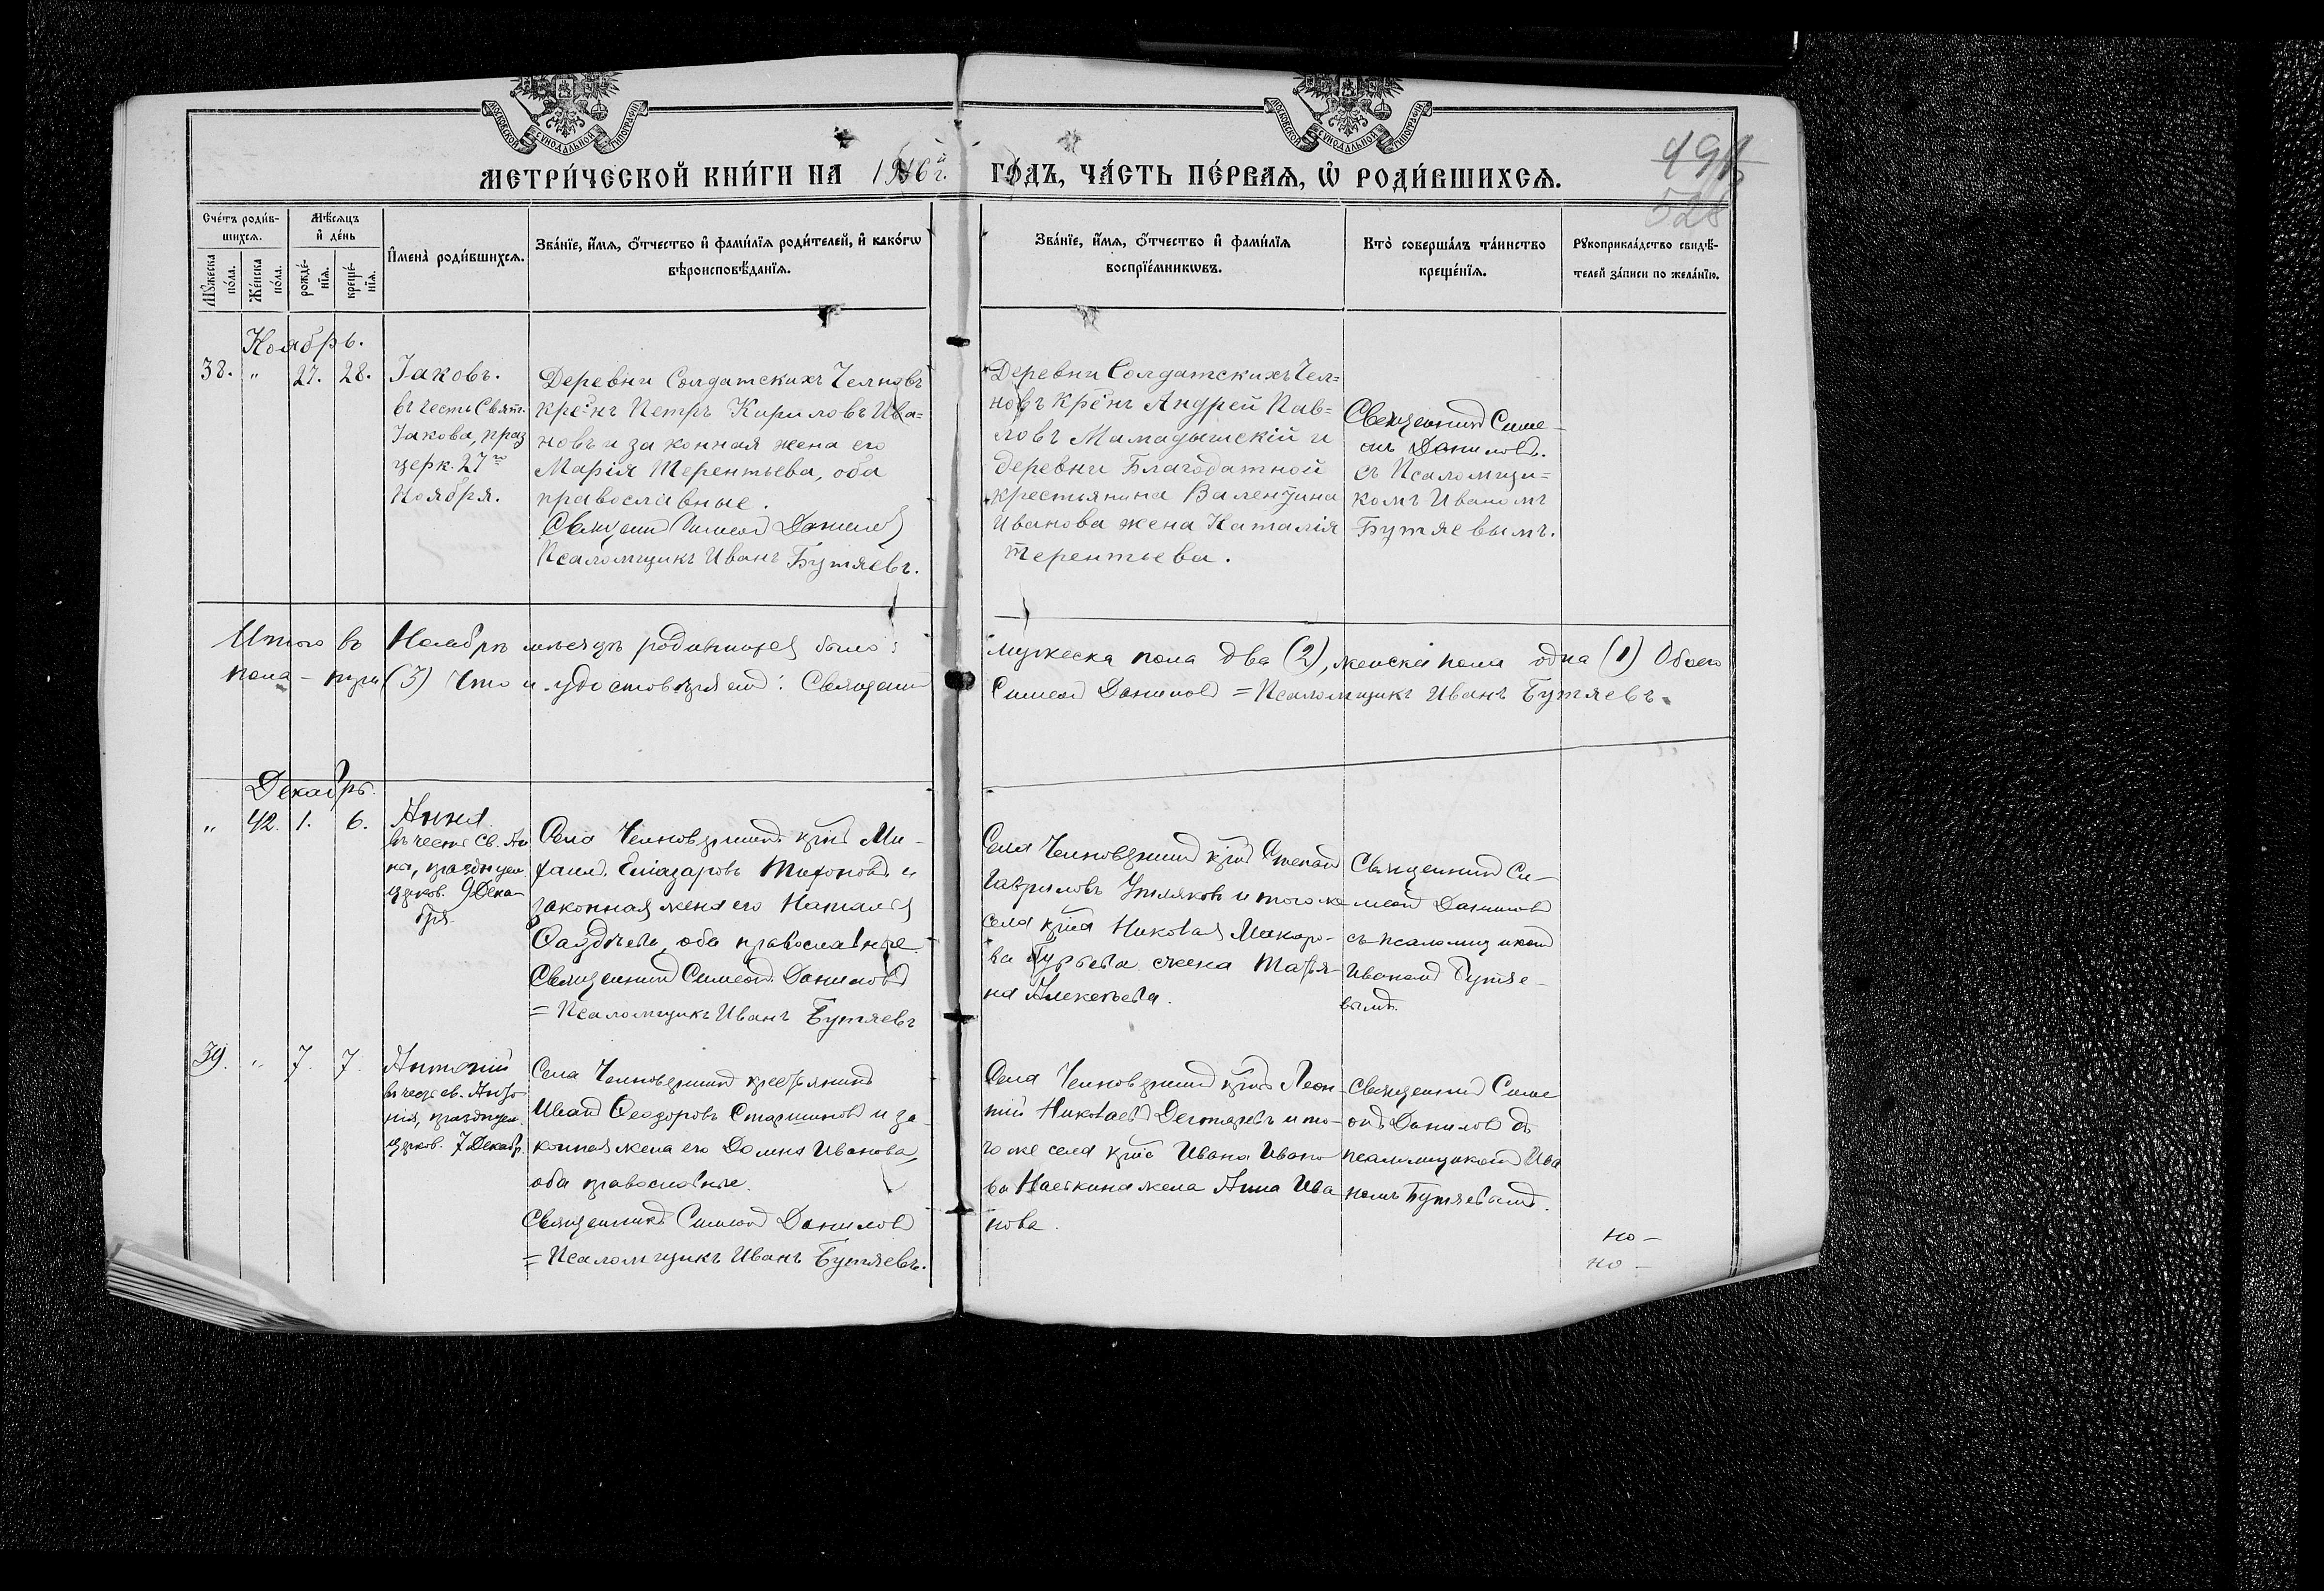 МОСКОВСКОЙ СУНОДАЛЬНОЙ ТИПОГРАФІИ
МОСКОВСКОЙ СУНОДАЛЬНОЙ ТИПОГРАФІИ
МЕТРИ́ЧЕСКОЙ КНИ́ГИ НА 1916 г. ГО́ДЪ, ЧА́СТЬ ПЕ́РВАѦ, Ѡ҆ РОДИ́ВШИХСѦ.
528
Сче́тъ роди́в-
шихсѧ.
Мѣ́сѧцъ
и҆ де́нь
Мꙋ́жеска по́ла.
Же́нска по́ла.
рожде́-нїѧ.
креще́-нїѧ.
И҆мена̀ роди́вшихсѧ.
Зва́нїе, и҆́мѧ, ѻ҆́тчество и҆ фами́лїѧ роди́телей, и҆ како́гѡ
вѣроисповѣ́данїѧ.
Зва́нїе, и҆́мѧ, ѻ҆́тчество и҆ фами́лїѧ
воспрїе́мникѡвъ.
Кто̀ соверша́лъ та́инство
креще́нїѧ.
Рꙋкоприкла́дство свидѣ́-
телей за́писи по жела́нїю.
Ноябрь.
38. " 27. 28.
Іаковъ.
въ честь Свят.
Іакова, праз
церк. 27го
Ноября.
Деревни Солдатскихъ Челновъ
кре-нъ Петръ Кириловъ Ива=
новъ и законная жена его
Марія Терентьева, оба
православные.
Священ Симеон Данилов
Псаломщикъ Иванъ Бутяевъ.
Деревни Солдатскихъ Чел=
новъ кре-нъ Андрей Пав=
ловъ Мамадышскій и
деревни Благодатной
крестьянина Валентина
Иванова жена Наталія
Терентьева.
Священникъ Симе-
онъ Даниловъ.
съ Псаломщи=
комъ Иваномъ
Бутяевымъ.
Итого въ Ноябрѣ мѣсяцѣ родившихся было: мужеска пола два (2), женска пола одна (1) Обоего
пола - три (3) Что и удостовѣряемъ: Священникъ Симеонъ Даниловъ = Псаломщикъ Иванъ Бутяевъ.
Декабрь.
" 42. 1. 6.
Анна
въ честь св. Ан
ны, празднуем
церков. 9 Дека-
бря.
Села Челновершинъ кр-нъ Ми-
хаилъ Еліазаровъ Тихоновъ и
законная жена его Наталія
Фаддѣева, оба православные.
Священникъ Симеонъ Даниловъ
= Псаломщикъ Иванъ Бутяевъ
Села Челновершинъ кр-нъ Степанъ
Гавриловъ и того же
села кр-на Николая Макаро-
ва жена Татья-
на Алексѣева.
Священникъ Си-
меонъ Даниловъ
съ псаломщикомъ
Иваномъ Бутяе-
вымъ.
39. " 7. 7.
Антоній
въ честь св. Анто-
нія, празднуем.
церков. 7 Декабр.
Села Челновершинъ крестьянинъ
Иванъ Ѳеодоровъ Старшиновъ и за-
конная жена его Домна Иванова,
оба православные.
Священникъ Симеонъ Даниловъ
= Псаломщикъ Иванъ Бутяевъ.
Села Челновершинъ кр-нъ Леон-
тій Николаевъ Дегтяревъ и то-
го же села кр-на Ивана Ивано-
ва жена Анна Ива
нова.
Священникъ Симе
онъ Даниловъ съ
псаломщикомъ Ива
номъ Бутяевымъ.
но -
но -